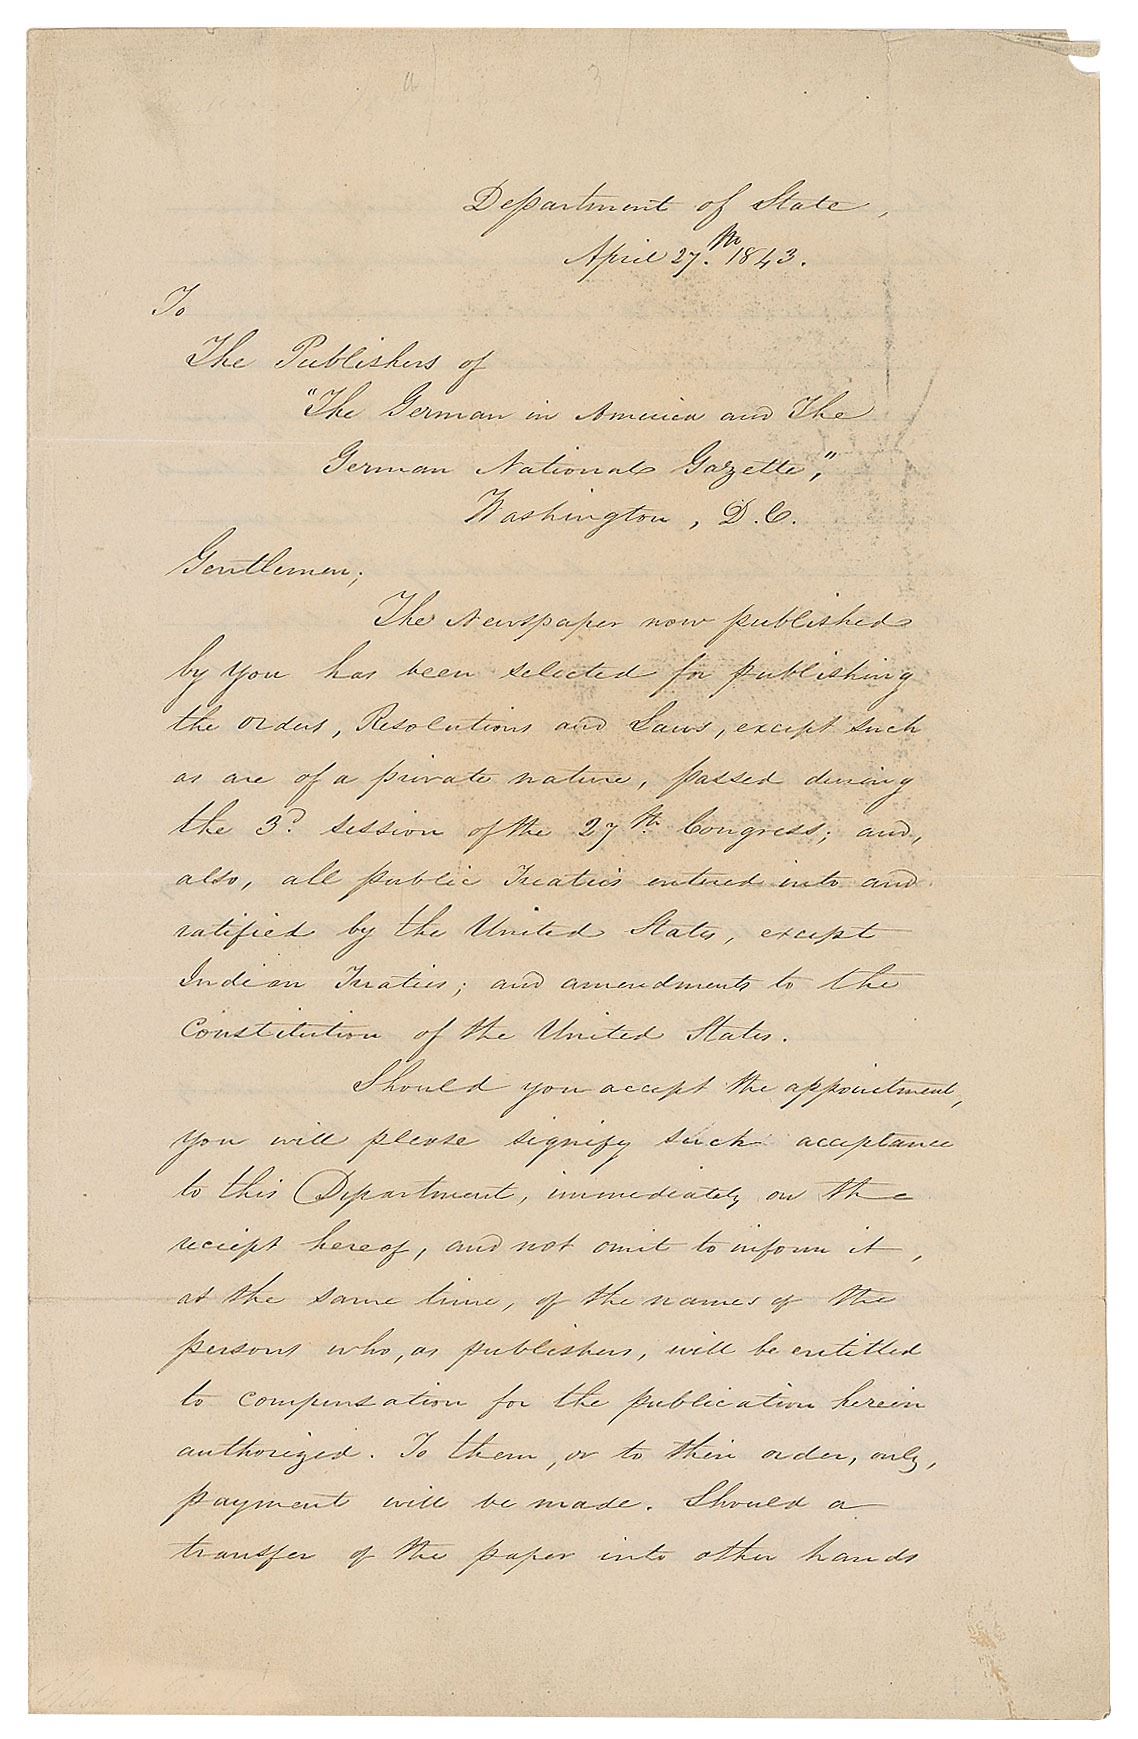 Department of State,
April 27.th 1843.
To
The Publishers of
"The German in America and The
German National Gazette",
Washington, D.C.
Gentlemen;
The Newspaper now published
by you has been selected for publishing
the orders, Resolutions and Laws, except such
as are of a private nature, passed during
the 3d. session of the 27th. Congress; and,
also, all public Treaties entered into and
ratified by the United States, except
Indian Treaties; and amendments to the
Constitution of the United States.
Should you accept the appointment,
you will please signify such acceptance
to this Department, immediately on the
reciept hereof, and not omit to inform it,
at the same time, of the names of the
persons who, as publishers, will be entitled
to compensation for the publication herein
authorized. To them, or to their order, only,
payment will be made. Should a
transfer of the paper into other hands